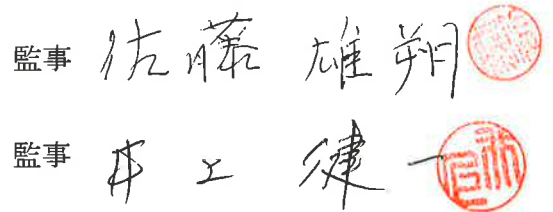 監事 佐藤 雄朔
監事 井上 健一